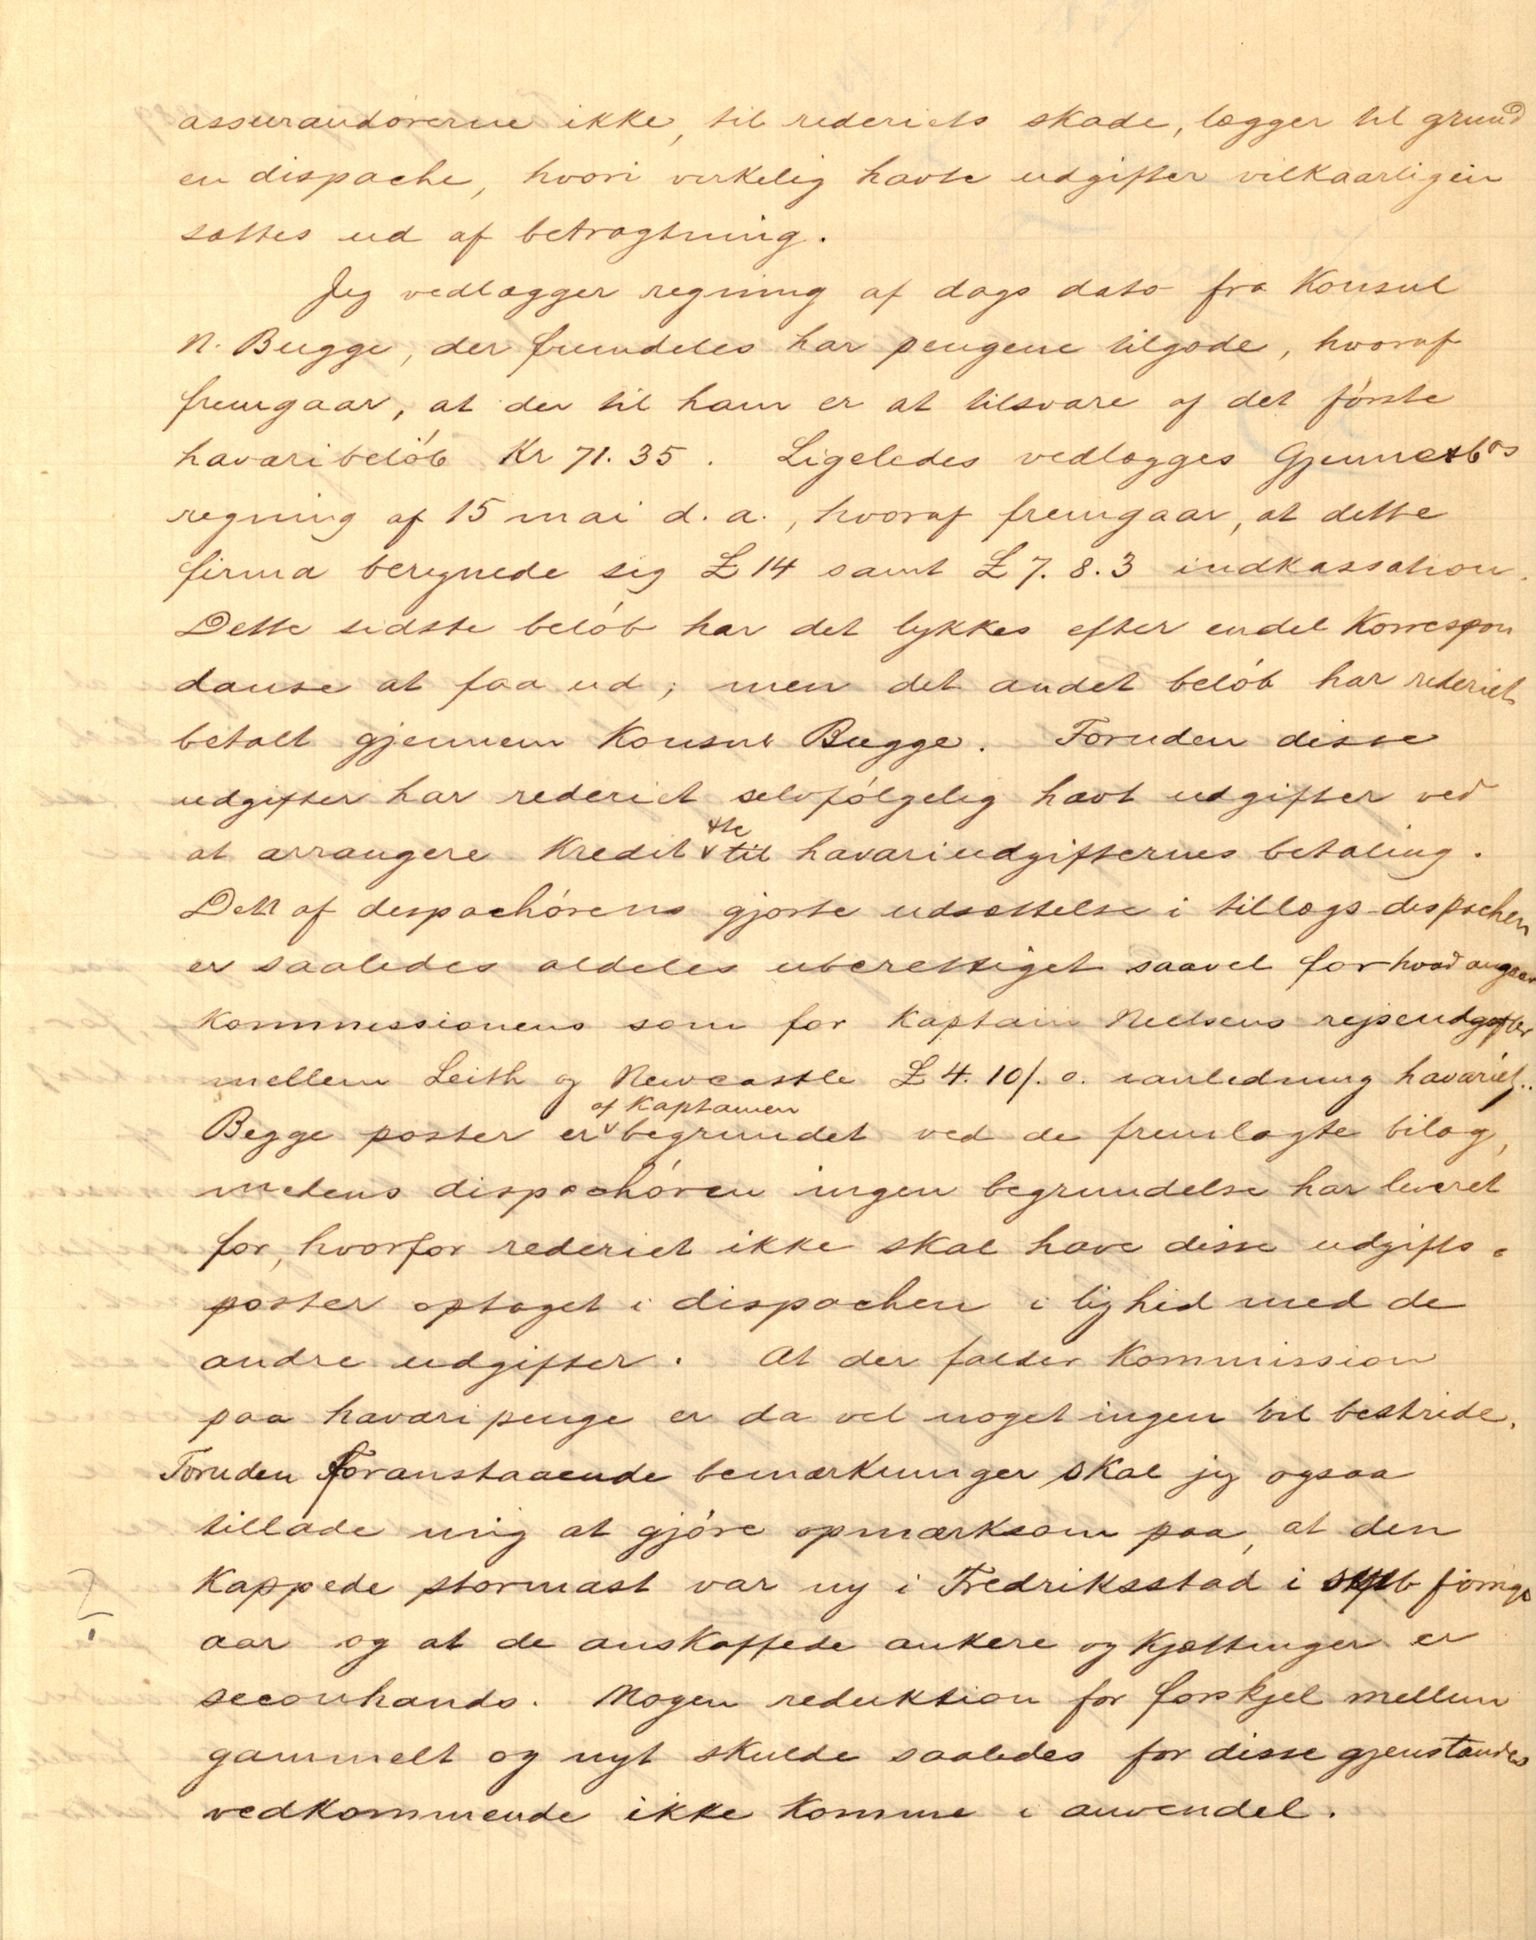 assurandørerne ikke, til rederiets skade, lægger til grund
en dispache, hvori virkelig havte udgifter vilkaarligen
sættes ud af betragtning.
Jeg vedlægger regning af dags dato fra Konsul
N. Bugge, der fremdeles har pengene tilgode, hvoraf
fremgaar, at der til ham er at tilsvare af det første
havaribeløb Kr 71.35. Ligeledes vedlægges
regning af 15 mai d. a., hvoraf fremgaar, at dette
firma beregnede sig £ 14 samt £ 7. 8. 3 indkassation.
Dette sidste beløb har det lykkes efter endel Korrespon
danse at faa ud; men det andet beløb har rederiet
betalt gjennem Konsul Bugge. Foruden disse
udgifter har rederiet selvfølgelig havt udgifter ved
at arrangere Kredit til havariudgifternes betaling.
Den af dispachørens gjorte udsættelse i tillægs-dispachen
er saaledes aldeles uberettiget saavel for hvad angaar
Kommissionens som for Kaptain Nielsens rejseudgifter
mellem Leith og Newcastle £ 4. 10/. o. ianledning havariet.
af Kaptainen
Begge poster er begrundet ved de fremlagte bilag,
medens dispachøren ingen begrundelse har leveret
for, hvorfor rederiet ikke skal have disse udgifts-
poster optaget i dispachen i lighed med de
andre udgifter. At der falder Kommission
paa havaripenge er da vel noget ingen vil bestride.
Foruden foranstaaende bemærkninger skal jeg ogsaa
tillade mig at gjøre opmærksom paa, at den
Kappede stormast var ny i Fredriksstad i forrige
aar og at de anskaffede ankere og Kjættinger er
seconhands. Nogen reduktion for forskjel mellem
gammelt og nyt skulde saaledes for disse gjenstandes
vedkommende ikke komme i anvendel.